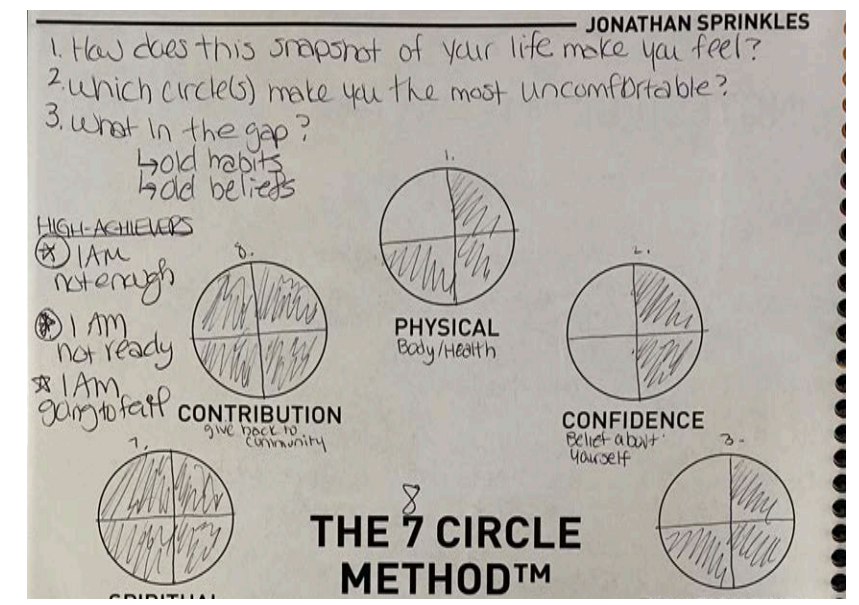 JONATHAN SPRINKLES
1. How does this snapshot of your life make you feel?
2. Which circle(s) make you the most uncomfortable?
3. What in the gap?
↳old habits
↳old beliefs
HIGH-ACHIEVERS
I AM
not enough
I AM
not ready
I AM
going to fail
1.
PHYSICAL
Body/Health
2.
CONFIDENCE
Belief about
yourself
3.
8.
CONTRIBUTION
give back to
community
7.
SPIRITUAL
8
THE 7 CIRCLE
METHOD™